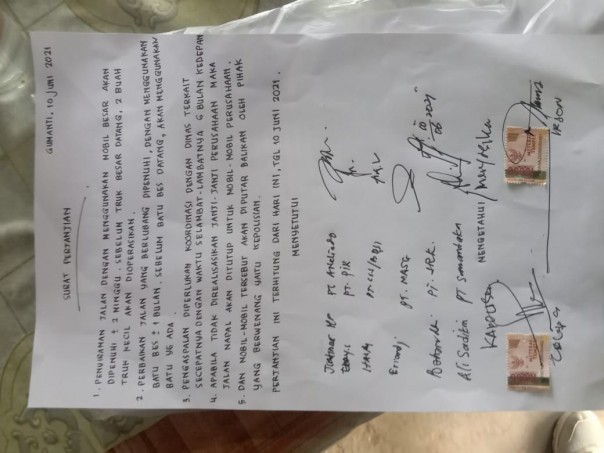 GUNANTI, 10 JUNI 2021
SURAT PERJANJIAN
1. PENYIRAMAN JALAN DENGAN MENGGUNAKAN MOBIL BESAR AKAN
DIPENUHI ± 2 MINGGU. SEBELUM TRUK BESAR DATANG, 2 BUAH
TRUK KECIL AKAN DIOPERASIKAN.
2. PERBAIKAN JALAN YANG BERLUBANG DIPENUHI, DENGAN MENGGUNAKAN
BATU BES ± 1 BULAN. SEBELUM BATU BES DATANG, AKAN MENGGUNAKAN
BATU YG ADA.
3. PENGASPALAN DIPERLUKAN KOORDINASI DENGAN DINAS TERKAIT
SECEPATNYA DENGAN WAKTU SELAMBAT-LAMBATNYA 6 BULAN KEDEPAN
4. APABILA TIDAK DIREALISASIKAN JANJI-JANJI PERUSAHAAN MAKA
JALAN NAPAL AKAN DITUTUP UNTUK MOBIL-MOBIL PERUSAHAAN.
5. DAN MOBIL-MOBIL TERSEBUT AKAN DIPUTAR BALIKAN OLEH PIHAK
YANG BERWENANG YAITU KEPOLISIAN.
PERJANJIAN INI TERHITUNG DARI HARI INI, TGL 10 JUNI 2021.
MENYETUJUI
PT. PIR
PT. MASG
Ali Sadikin PT.
MENGETAHUI
KAPOLSEK
IRSON